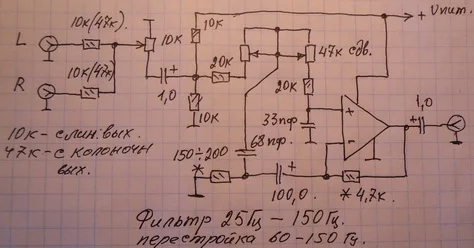 10к(47к).
10к
+ Uпит.
L
10к
20к
47к сдв.
10к(47к)
R
+
20к
1,0
10к
+
1,0
+
10к - с лин. вых.
33пф
68пф.
47к - с колоночн
вых.
150÷200
*
-
+
100,0
* 4,7к.
Фильтр 25Гц – 150Гц.
перестройка 60 – 150 Гц.